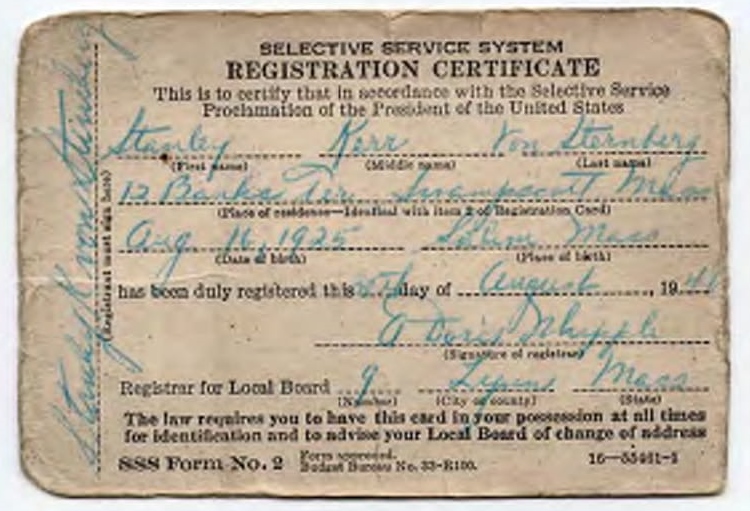 SELECTIVE SERVICE SYSTEM
REGISTRATION CERTIFICATE
This is to certify that in accordance with the Selective Service
Proclamation of the President of the United States
Stanley Kerr Von Sternberg
(First name) (Middle name) (Last name)
12 Banks Ter. Swampscott Mass
(Place of residence—Identical with item 2 of Registration Card)
Aug 16, 1925 Salem Mass
(Date of birth) (Place of birth)
has been duly registered this day of August, 19
Doris Whipple
(Signature of registrar)
Registrar for Local Board 9 Mass
(Number) (City or county) (State)
The law requires you to have this card in your possession at all times
for identification and to advise your Local Board of change of address
SSS Form No. 2 Form approved.
Budget Bureau No. 33-R100.
16—55461-1
Stanley K von Sternberg
(Registrant must sign here)